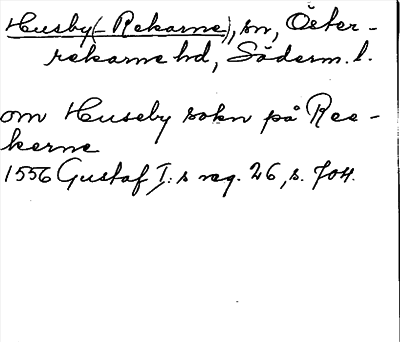 Husby(-Rekarne), sn, Öster-
rekarne hd, Söderm. l.
om Huseby sokn på Ree-
kerne
1556 Gustaf I:s reg. 26, s. 704.